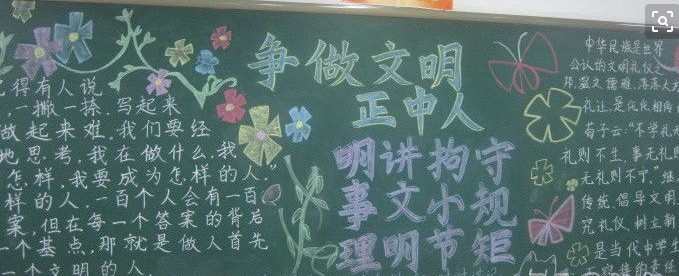 得有人说
,一撇一捺,写起来
做起来难,我们要经
地思考,我在做什么,我
怎样,我要成为怎样的人。
样的人。一百个人会有一百
案,但在每一个答案的背后
一个基点,那就是做人首先
一个文明的人.
争做文明
正中人
明讲拘守
事文小规
理明节矩
中华民族是世界
公认的文明礼仪之
邦,温文儒雅,落落大方
礼让,是
荀子云:“不学礼无
礼则不生,事无礼则
无礼则不宁。”继
传统 倡导文明
究礼仪,树立新
是当代中学生
的责任